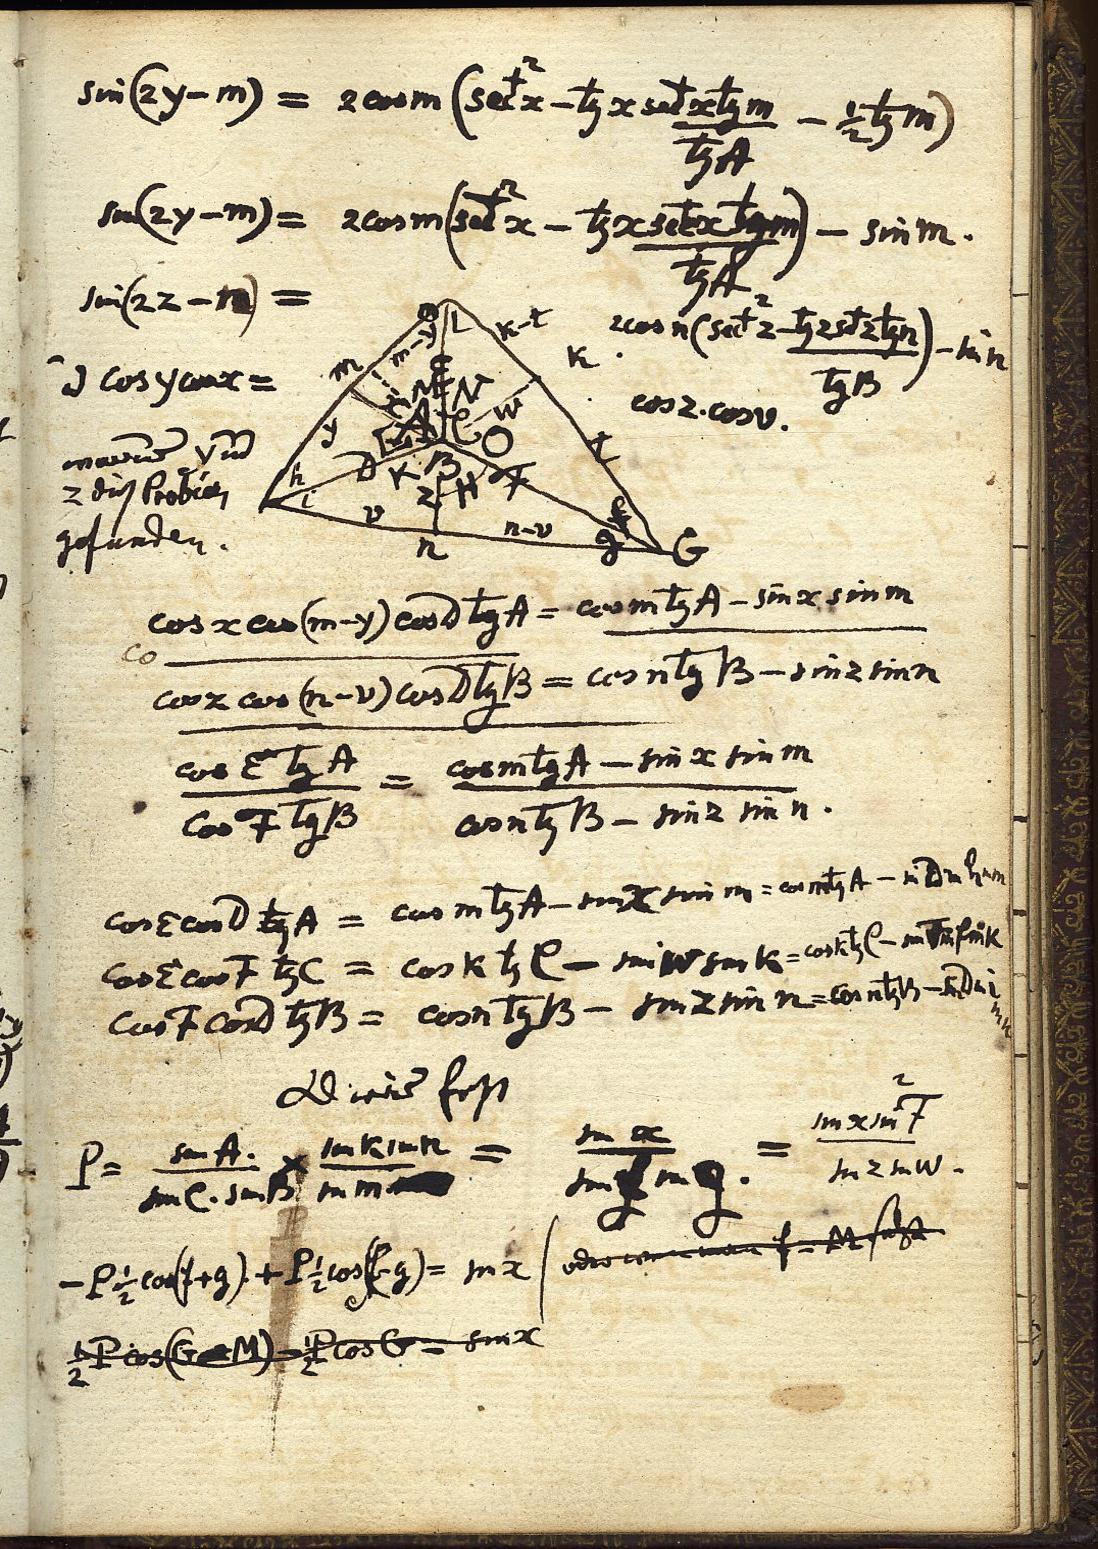 sin(2y-m) = 2cosm (sect²x - tgx sect x tg m / tg A - ½ tg m)
sin(2y-m) = 2cosm (sect²x - tgx sect x tgm / tg A) - sin m.
sin(2z-n) = 2cos n (sect²z - tgz sect z tgn / tg B) - sin n
cosy cosx = cosz. cosv.
y und
z
gefunden.
L
k-t
k
m
m-y
E
M N
x
A
C
W
O
y
t
h
D
K B H F
i
z
v
n-v
n
f
g
G
cosx cos(m-y) cosD tgA = cosm tgA - sinx sinm
co
cosz cos(n-v) cosD tgB = cosn tgB - sinz sinn
cosE tg A / cosF tgB = cosm tgA - sinx sin m / cosn tgB - sinz sin n.
cosE cosD tgA = cosm tgA - sinx sin m = cosm tgA - sinD sin h sin m
cosE cosF tgC = cosk tgC - sinw sin k = cosk tgC - sinF sin f sin k
cosF cosD tgB = cosn tgB - sinz sin n = cosn tgB - sinD sin i sin n
P = sin A. / sinC. sinB × sin k sin n / sin m = sin x / sin f sin g. = sin x sin²F / sin z sin W.
-P½ cos(f+g) + P½ cos(f-g) = sin x
½P cos(G M) - ½P cos G = sin x